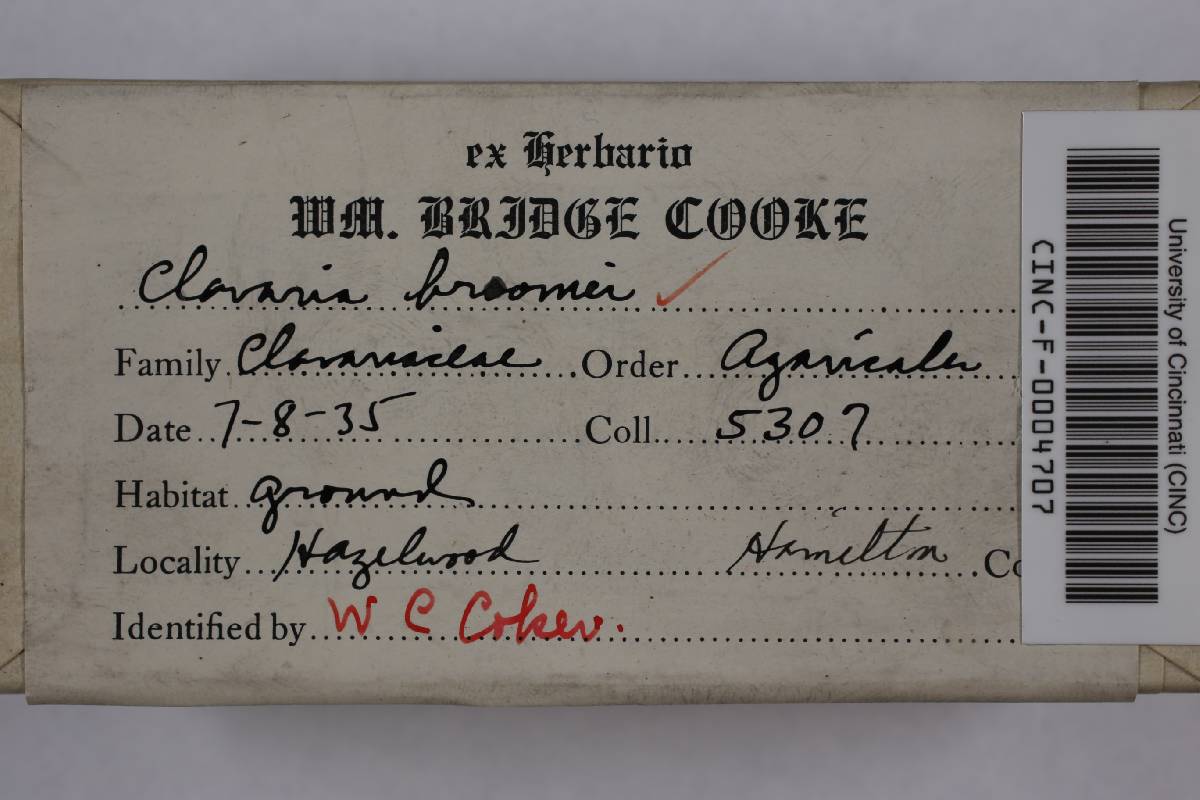 ex Herbario
WM. BRIDGE COOKE
Clavaria broomei ✓
Family Clavariaceae Order Agaricales
Date 7-8-35 Coll. 5307
Habitat ground
Locality Hazelwood Hamilton Co
Identified by W C Coker.
CINC-F-0004707
University of Cincinnati (CINC)